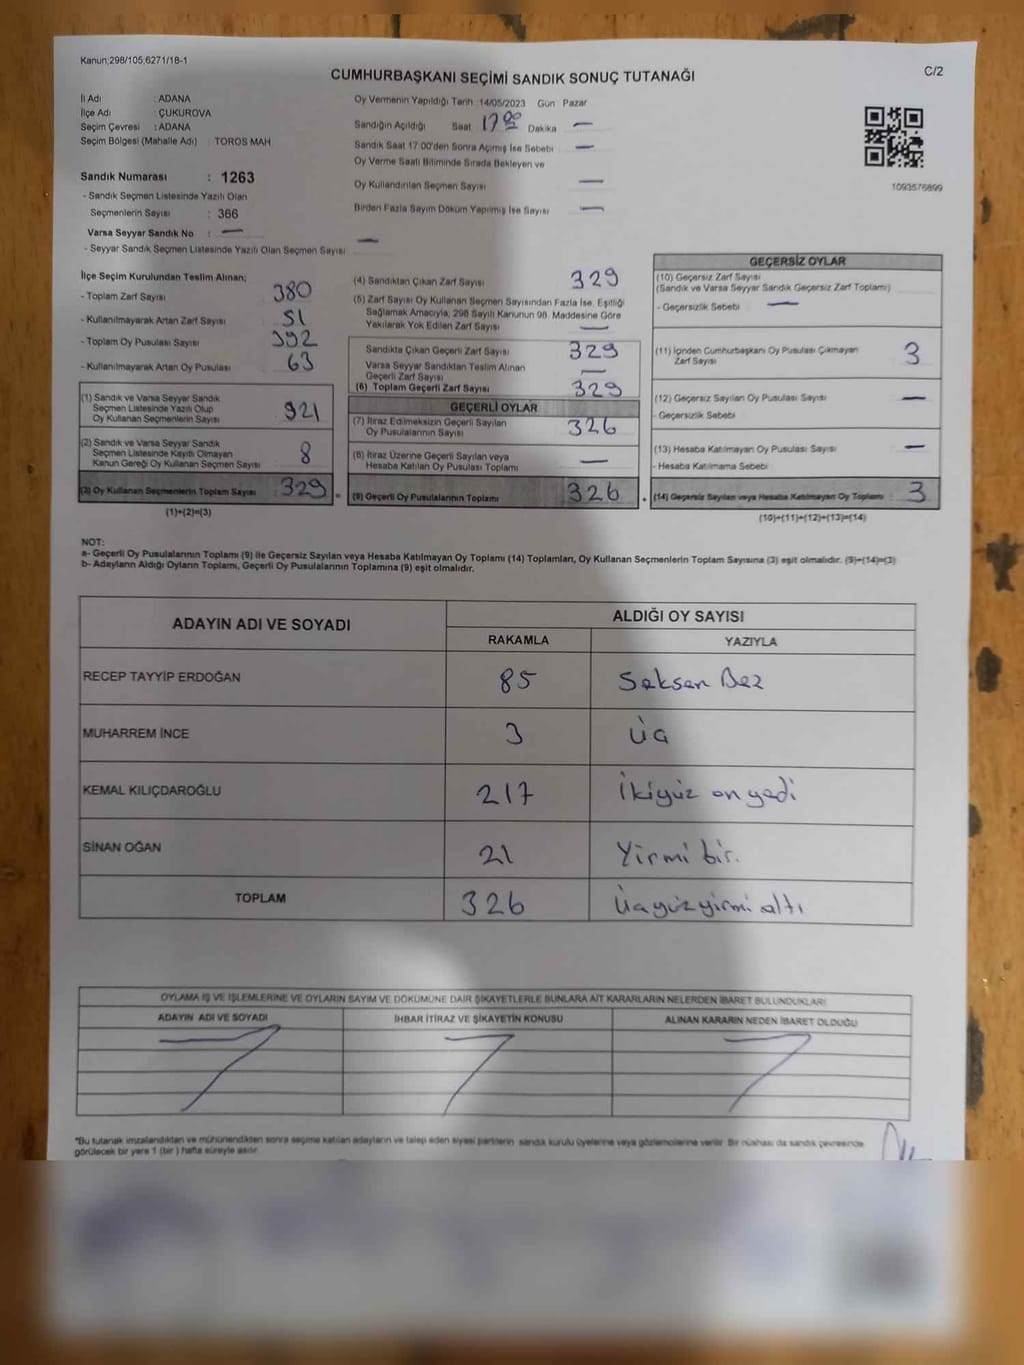 Kanun;298/105,6271/18-1
CUMHURBAŞKANI SEÇİMİ SANDIK SONUÇ TUTANAĞI
C/2
İl Adı : ADANA
İlçe Adı : ÇUKUROVA
Seçim Çevresi : ADANA
Seçim Bölgesi (Mahalle Adı) : TOROS MAH
Sandık Numarası : 1263
- Sandık Seçmen Listesinde Yazılı Olan
Seçmenlerin Sayısı : 366
Varsa Seyyar Sandık No : —
- Seyyar Sandık Seçmen Listesinde Yazılı Olan Seçmen Sayısı —
Oy Vermenin Yapıldığı Tarih 14/05/2023 Gün Pazar
Sandığın Açıldığı Saat 17 00 Dakika —
Sandık Saat 17:00'den Sonra Açımış İse Sebebi —
Oy Verme Saati Bitiminde Sırada Bekleyen ve
Oy Kullandırılan Seçmen Sayısı —
Birden Fazla Sayım Döküm Yapılmış İse Sayısı —
1093576899
İlçe Seçim Kurulundan Teslim Alınan;
- Toplam Zarf Sayısı 380
- Kullanılmayarak Artan Zarf Sayısı 51
- Toplam Oy Pusulası Sayısı 392
- Kullanılmayarak Artan Oy Pusulası 63
(1) Sandık ve Varsa Seyyar Sandık
Seçmen Listesinde Yazılı Olup
Oy Kullanan Seçmenlerin Sayısı 321
(2) Sandık ve Varsa Seyyar Sandık
Seçmen Listesinde Kayıtlı Olmayan
Kanun Gereği Oy Kullanan Seçmen Sayısı 8
(3) Oy Kullanan Seçmenlerin Toplam Sayısı : 329
(1)+(2)=(3)
(4) Sandıktan Çıkan Zarf Sayısı 329
(5) Zarf Sayısı Oy Kullanan Seçmen Sayısından Fazla İse, Eşitliği
Sağlamak Amacıyla, 298 Sayılı Kanunun 98. Maddesine Göre
Yakılarak Yok Edilen Zarf Sayısı —
Sandıkta Çıkan Geçerli Zarf Sayısı 329
Varsa Seyyar Sandıktan Teslim Alınan
Geçerli Zarf Sayısı —
(6) Toplam Geçerli Zarf Sayısı 329
GEÇERLİ OYLAR
(7) İtiraz Edilmeksizin Geçerli Sayılan
Oy Pusulalarının Sayısı 326
(8) İtiraz Üzerine Geçerli Sayılan veya
Hesaba Katılan Oy Pusulası Toplamı —
= (9) Geçerli Oy Pusulalarının Toplamı 326
GEÇERSİZ OYLAR
(10) Geçersiz Zarf Sayısı
(Sandık ve Varsa Seyyar Sandık Geçersiz Zarf Toplamı)
- Geçersizlik Sebebi —
(11) İçinden Cumhurbaşkanı Oy Pusulası Çıkmayan
Zarf Sayısı 3
(12) Geçersiz Sayılan Oy Pusulası Sayısı —
- Geçersizlik Sebebi
(13) Hesaba Katılmayan Oy Pusulası Sayısı —
- Hesaba Katılmama Sebebi
+ (14) Geçersiz Sayılan veya Hesaba Katılmayan Oy Toplamı : 3
(10)+(11)+(12)+(13)=(14)
NOT:
a- Geçerli Oy Pusulalarının Toplamı (9) ile Geçersiz Sayılan veya Hesaba Katılmayan Oy Toplamı (14) Toplamları, Oy Kullanan Seçmenlerin Toplam Sayısına (3) eşit olmalıdır. (9)+(14)=(3)
b- Adayların Aldığı Oyların Toplamı, Geçerli Oy Pusulalarının Toplamına (9) eşit olmalıdır.
ADAYIN ADI VE SOYADI
ALDIĞI OY SAYISI
RAKAMLA YAZIYLA
RECEP TAYYİP ERDOĞAN 85 Seksen Beş
MUHARREM İNCE 3 üç
KEMAL KILIÇDAROĞLU 217 İkiyüz on yedi
SİNAN OĞAN 21 Yirmi bir.
TOPLAM 326 üçyüzyirmi altı
OYLAMA İŞ VE İŞLEMLERİNE VE OYLARIN SAYIM VE DÖKÜMÜNE DAİR ŞİKAYETLERLE BUNLARA AİT KARARLARIN NELERDEN İBARET BULUNDUKLARI
ADAYIN ADI VE SOYADI İHBAR İTİRAZ VE ŞİKAYETİN KONUSU ALINAN KARARIN NEDEN İBARET OLDUĞU
*Bu tutanak imzalandıktan ve mühürlendikten sonra seçime katılan adayların ve talep eden siyasi partilerin sandık kurulu üyelerine veya gözlemcilerine verilir. Bir nüshası da sandık çevresinde
görülecek bir yere 1 (bir) hafta süreyle asılır.